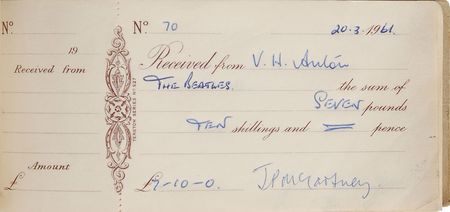 Nº.
19
Received from
Amount
£
TENSTON SERIES Nº 527
Nº. 70 20-3-1961.
Received from V. H. Antón
THE BEATLES. the sum of
SEVEN pounds
TEN shillings and pence
£7-10-0. J P McCartney.